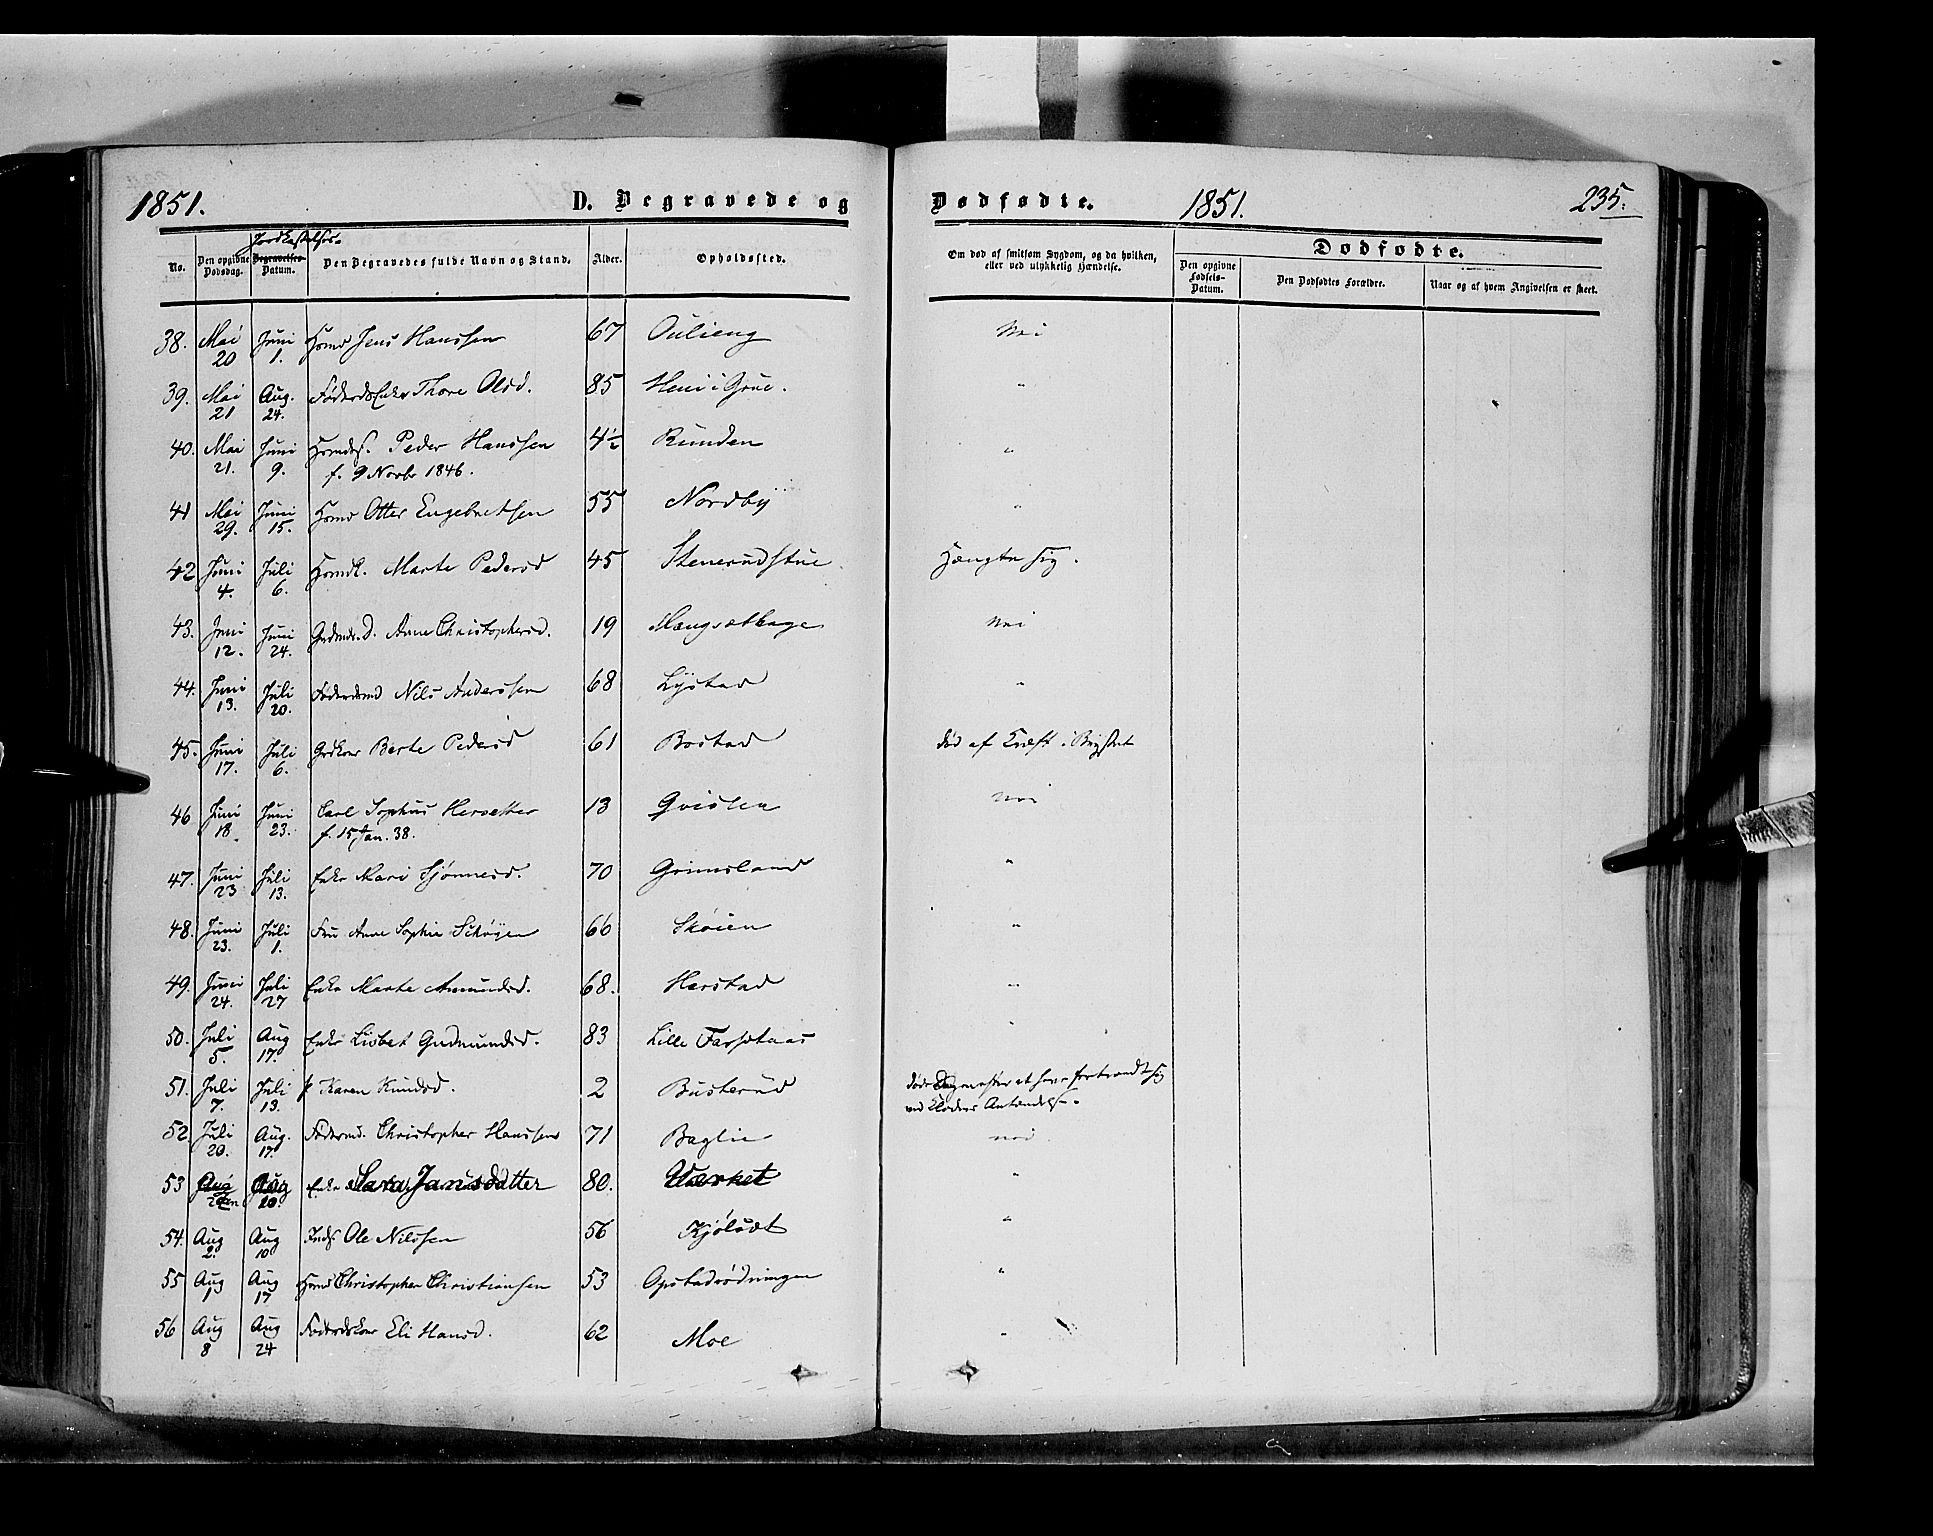 1851. D. Begravede og Dødfødte. 1851. 235.
No. Den opgivne Dødsdag. Jordkastelses- Begravelses-Datum. Den Begravedes fulde Navn og Stand. Alder. Opholdssted. Om død af smitsom Sygdom, og da hvilken, eller ved ulykkelig Hændelse. Dødfødte. Den opgivne Fødsels-Datum. Den Dødfødtes Forældre. Naar og af hvem Angivelsen er skeet.
38. Mai 20 Juni 1. Hsmd Jens Hanssen 67 Oulieng Nei
39. Mai 21 Aug. 24. Føderaads Enke Thore Olsd. 85 i Grue. "
40. Mai 21. Juni 9. Hsmds. Peder Hanssen 4½ Runden "
f. 9 Novbr 1846.
41 Mai 29. Juni 15. Hsmd Otter Engebretsen 55 Nordby "
42 Juni 4. Juli 6. Hsmdk. Marte Pedersd 45 Stenerudstue Hængte sig.
43. Juni 12. Juni 24. Grdmds. D. Anne Christophersd. 19 Mangsethage Nei
44. Juni 13. Juli 20. Føderdsmd Nils Anderssen 68 Lystad "
45. Juni 17. Juli 6. Grdkone Berte Pedersd 61 Bostad død af Kræft i Brystet
46 Juni 18. Juni 23. Carl Sophus Hersetter 13 Qvislen nei
f. 15 Jan. 38.
47. Juni 23 Juli 13. Enke Mari Sjønnesd. 70 Grimsland "
48. Juni 23. Juli 1. Fru Anne Sophie Schøyen 66 Skøien "
49. Juni 24. Juli 27 Enke Marte Amundsd. 68. Harstad "
50. Juli 5. Aug 17. Enke Lisbet Gudmundsd. 83 Lille Farsetaas "
51. Juli 7. Juli 13. Karen Knudsd. 2 Busterud døde Dagen efter at have forbrændt sig
ved Klædnes Antændelse.
52. Juli 20. Aug. 17. Fødermd. Christopher Hanssen 71 Baglie nei
53 Aug Aug 20. Enke Sara Jansdatter 80. Værket "
54. Aug 2. Aug 10 Inds. Ole Nilssen 56 Kjølset "
55 Aug 1 Aug 17 Hsmd Christopher Christiansen 53 Opstadrødningen "
56 Aug 8 Aug 24 Føderdskone Eli Hansd. 62 Moe "